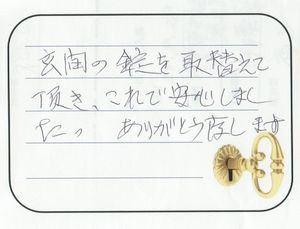 玄関の錠を取替えて
頂き、これで安心しまし
た。 ありがとう存じます